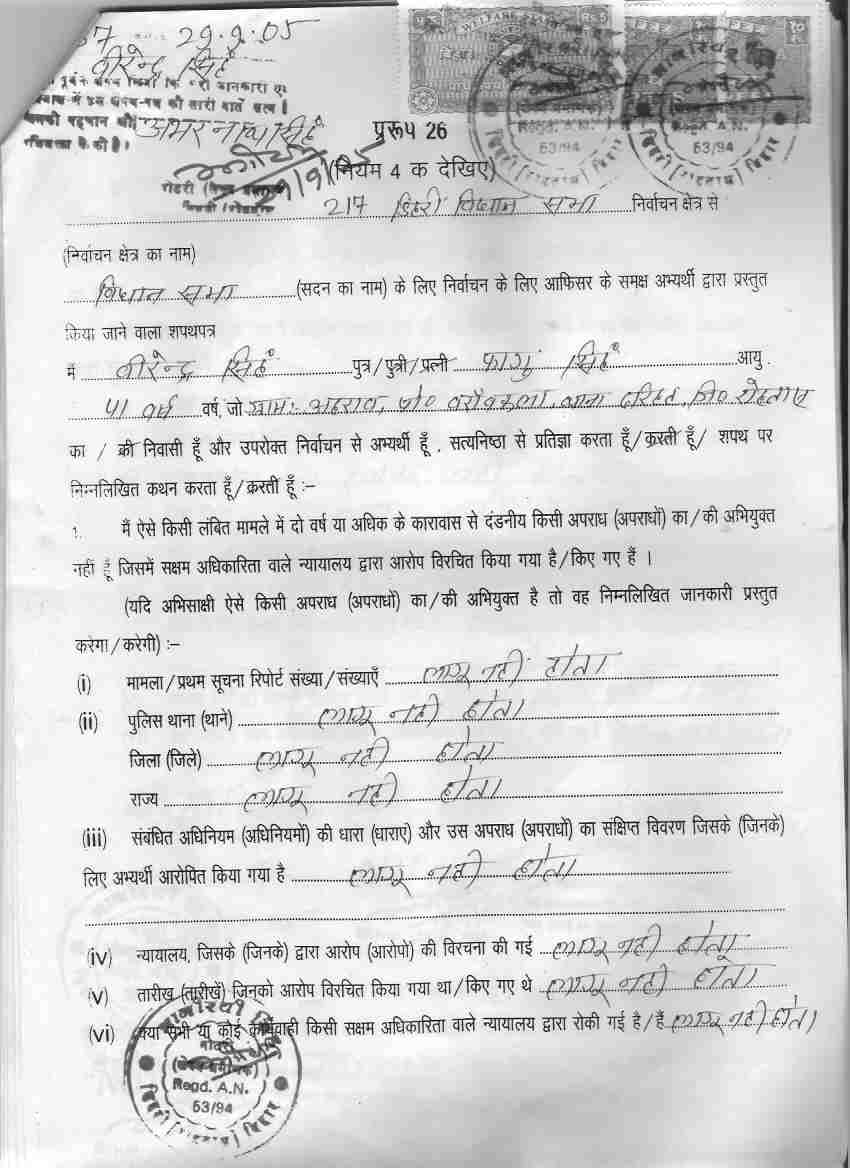 29.9.05
वीरेन्द्र सिहं
की सारी बातें सत्य
अमर नाथ सिहं
29/9/05
प्ररूप 26
(नियम 4 क देखिए)
217 डिहरी विधान सभा निर्वाचन क्षेत्र से
(निर्वाचन क्षेत्र का नाम)
विधान सभा (सदन का नाम) के लिए निर्वाचन के लिए आफिसर के समक्ष अभ्यर्थी द्वारा प्रस्तुत
किया जाने वाला शपथपत्र
मैं वीरेन्द्र सिहं पुत्र/पुत्री/पत्नी फागुं सिहं आयु
41 वर्ष वर्ष, जो ग्राम:- अहराव, पो० थाना दरिहट, जि० रोहतास
का / की निवासी हूँ और उपरोक्त निर्वाचन से अभ्यर्थी हूँ , सत्यनिष्ठा से प्रतिज्ञा करता हूँ/करती हूँ/ शपथ पर
निम्नलिखित कथन करता हूँ/करती हूँ :-
1. मैं ऐसे किसी लंबित मामले में दो वर्ष या अधिक के कारावास से दंडनीय किसी अपराध (अपराधों) का/की अभियुक्त
नहीं हूँ जिसमें सक्षम अधिकारिता वाले न्यायालय द्वारा आरोप विरचित किया गया है/किए गए हैं ।
(यदि अभिसाक्षी ऐसे किसी अपराध (अपराधों) का/की अभियुक्त है तो वह निम्नलिखित जानकारी प्रस्तुत
करेगा/करेगी) :-
(i) मामला/प्रथम सूचना रिपोर्ट संख्या/संख्याएँ लागू नहीं होता
(ii) पुलिस थाना (थाने) लागू नही होता
जिला (जिले) लागू नही होता
राज्य लागू नही होता
(iii) संबंधित अधिनियम (अधिनियमों) की धारा (धाराएं) और उस अपराध (अपराधों) का संक्षिप्त विवरण जिसके (जिनके)
लिए अभ्यर्थी आरोपित किया गया है लागू नही होता
(iv) न्यायालय, जिसके (जिनके) द्वारा आरोप (आरोपो) की विरचना की गई लागू नही होता
(v) तारीख (तारीखें) जिनको आरोप विरचित किया गया था/किए गए थे लागू नही होता
(vi) क्या सभी या कोई कार्यवाही किसी सक्षम अधिकारिता वाले न्यायालय द्वारा रोकी गई है/हैं लागू नही होता
Regd. A.N.
53/94